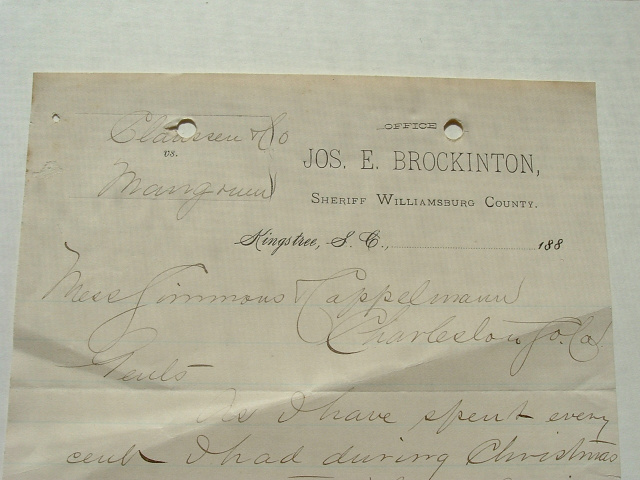 OFFICE
Claussen & Co
vs.
Mangrum
JOS. E. BROCKINTON,
SHERIFF WILLIAMSBURG COUNTY.
Kingstree, S. C., 188
Mess Simmons & Cappelmann
Charleston So. Ca
Gents
As I have spent every
cent I had during Christmas